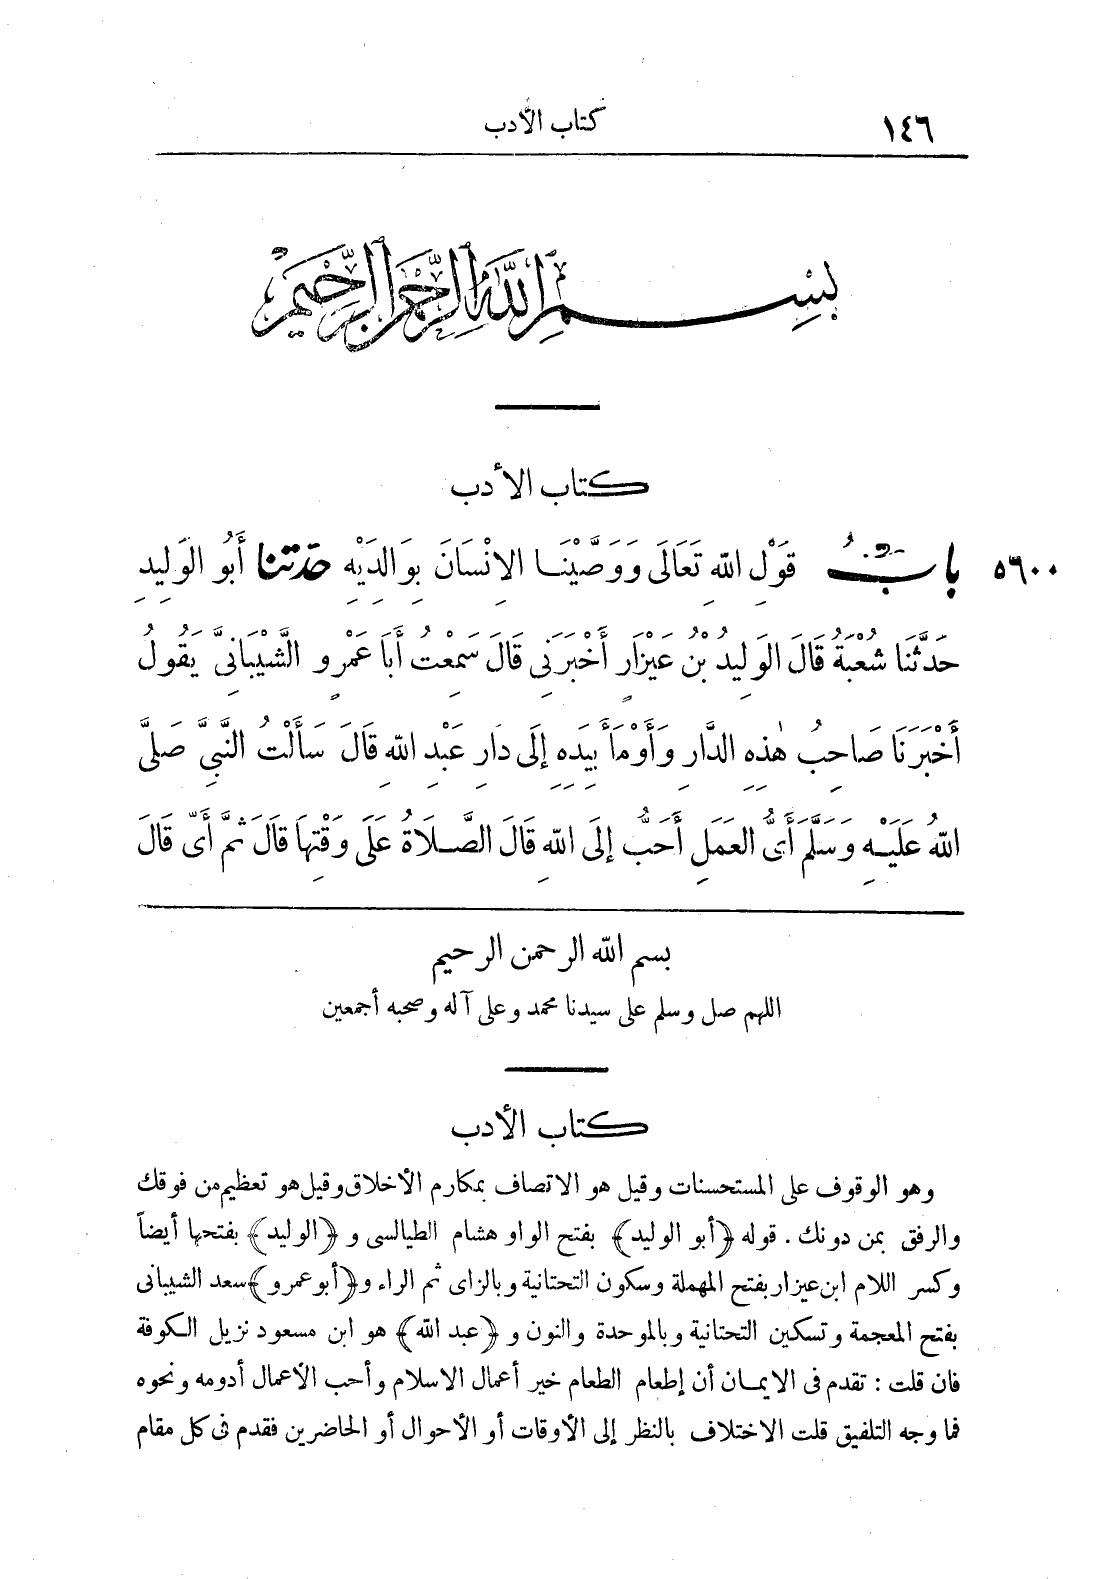 ١٤٦
كتاب الأدب
بسم الله الرحمن الرحيم
كتاب الأدب
٥٦٠٠ بابُ قَوْلِ اللهِ تَعَالَى وَوَصَّيْنَا الإِنْسَانَ بِوَالِدَيْهِ حدثنا أَبُو الوَلِيدِ
حَدَّثَنَا شُعْبَةُ قَالَ الوَلِيدُ بْنُ عَيْزَارٍ أَخْبَرَنِى قَالَ سَمِعْتُ أَبَا عَمْرٍو الشَّيْبَانِىَّ يَقُولُ
أَخْبَرَنَا صَاحِبُ هٰذِهِ الدَّارِ وَأَوْمَأَ بِيَدِهِ إِلَى دَارِ عَبْدِ اللهِ قَالَ سَأَلْتُ النَّبِىَّ صَلَّى
اللهُ عَلَيْهِ وَسَلَّمَ أَىُّ العَمَلِ أَحَبُّ إِلَى اللهِ قَالَ الصَّلَاةُ عَلَى وَقْتِهَا قَالَ ثُمَّ أَىّ قَالَ
بسم الله الرحمن الرحيم
اللهم صل وسلم على سيدنا محمد وعلى آله وصحبه أجمعين
كتاب الأدب
وهو الوقوف على المستحسنات وقيل هو الاتصاف بمكارم الأخلاق وقيل هو تعظيم من فوقك
والرفق بمن دونك. قوله ﴿أبو الوليد﴾ بفتح الواو هشام الطيالسى و ﴿الوليد﴾ بفتحها أيضاً
وكسر اللام ابن عيزار بفتح المهملة وسكون التحتانية وبالزاى ثم الراء و﴿أبو عمرو﴾ سعد الشيبانى
بفتح المعجمة وتسكين التحتانية وبالموحدة والنون و ﴿عبد الله﴾ هو ابن مسعود نزيل الكوفة
فان قلت : تقدم فى الايمان أن إطعام الطعام خير أعمال الاسلام وأحب الأعمال أدومه ونحوه
فما وجه التلفيق قلت الاختلاف بالنظر إلى الأوقات أو الأحوال أو الحاضرين فقدم فى كل مقام